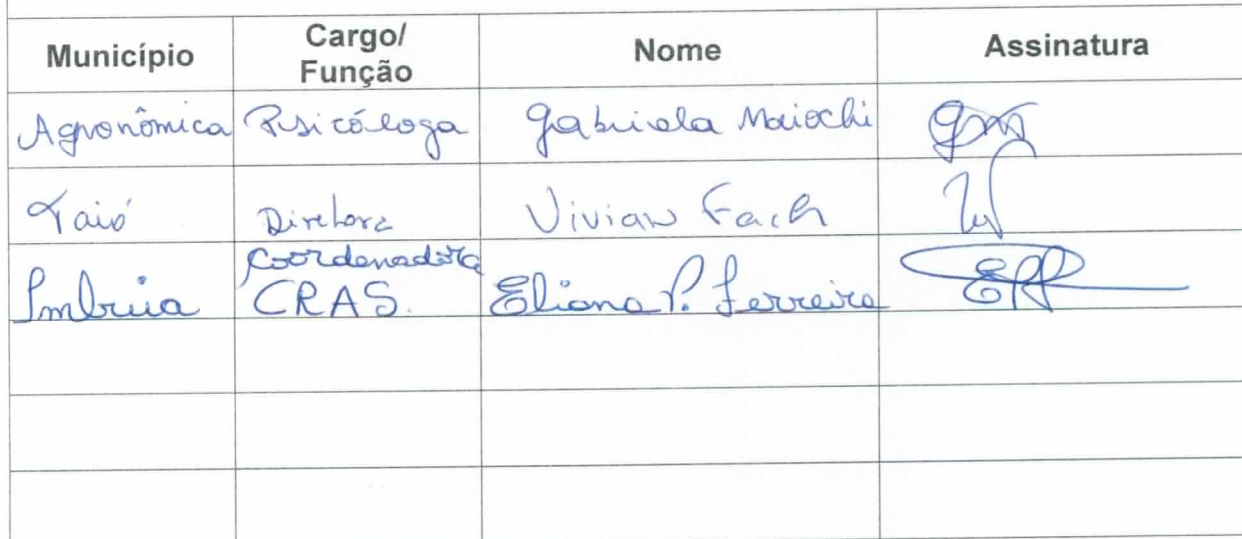 Município Cargo/ Função Nome Assinatura
Agronômica Psicóloga Gabriela Maiochi GM
Taió Diretora Vivian Fach
Imbuia Coordenadora CRAS. Eliane P. Ferreira EPF